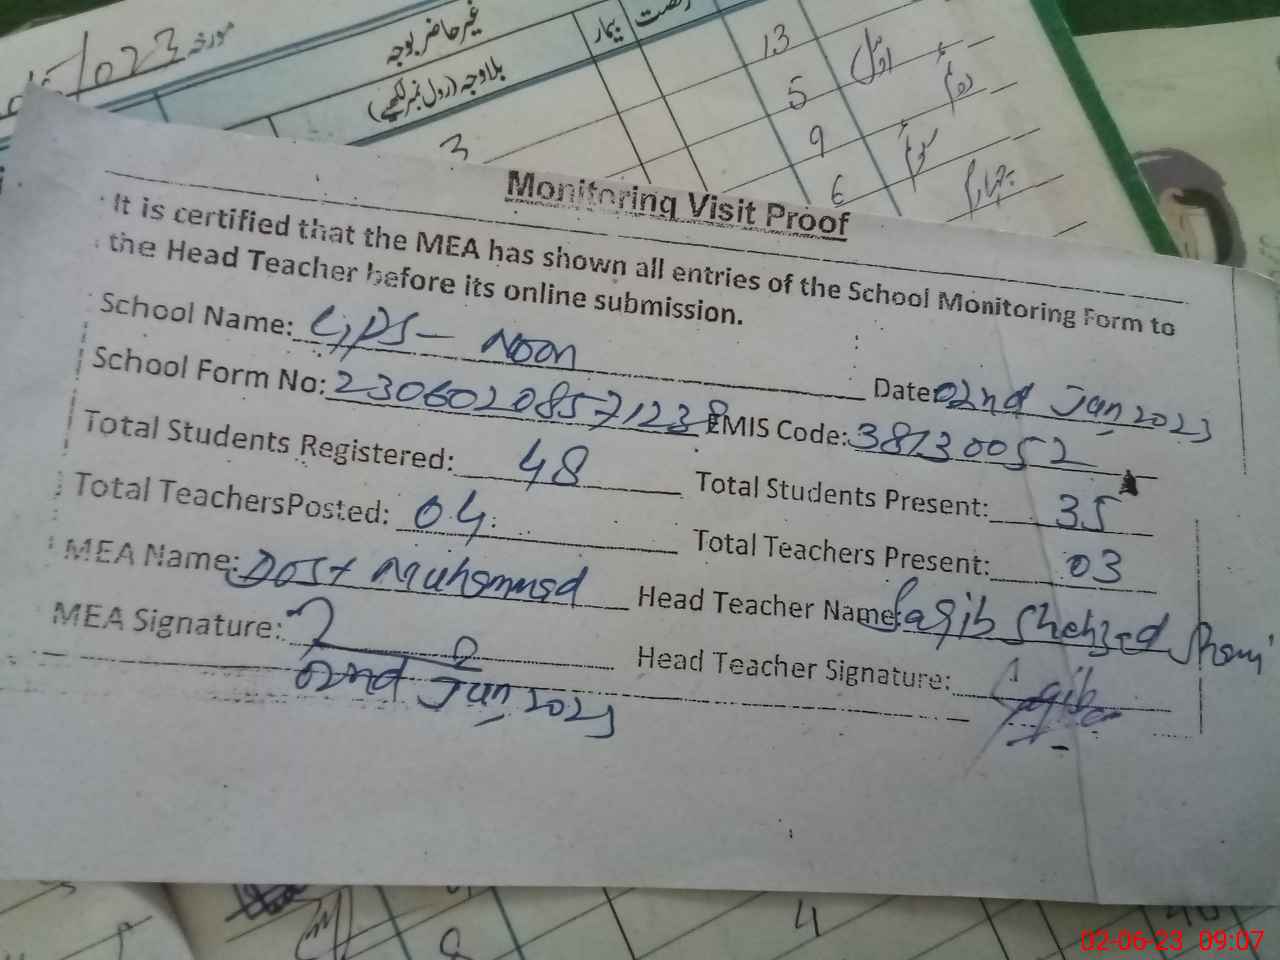 مورخہ
غیر حاضر بوجہ
بلاوجہ (رول نمبر لکھیے)
بیمار
رخصت
3
13
5
9
6
اول
دوم
سوم
چہارم
Monitoring Visit Proof
It is certified that the MEA has shown all entries of the School Monitoring Form to
the Head Teacher before its online submission.
School Name: GPS - Noon Date: 02nd Jan, 2023
School Form No: 23060208571238 EMIS Code: 38130052
Total Students Registered: 48 Total Students Present: 35
Total TeachersPosted: 04 Total Teachers Present: 03
MEA Name: Dost Muhammad Head Teacher Name: Saqib Shehzad Shami
MEA Signature: Head Teacher Signature: Saqib
02nd Jan, 2023
4
8
02-06-23 09:07